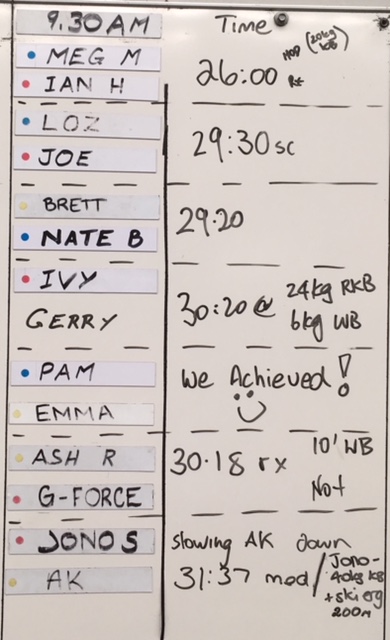 9.30AM Time
MEG M (20kg KB)
IAN H 26:00 Rx
LOZ
JOE 29:30 sc
BRETT
NATE B 29.20
IVY 24kg RKB
GERRY 30:20 @ 6kg WB
PAM We Achieved!
EMMA
ASH R 30.18 rx 10' WB
G-FORCE Not
JONO S slowing AK down
AK 31:37 mod / Jono - 40kg KB + ski erg 200m